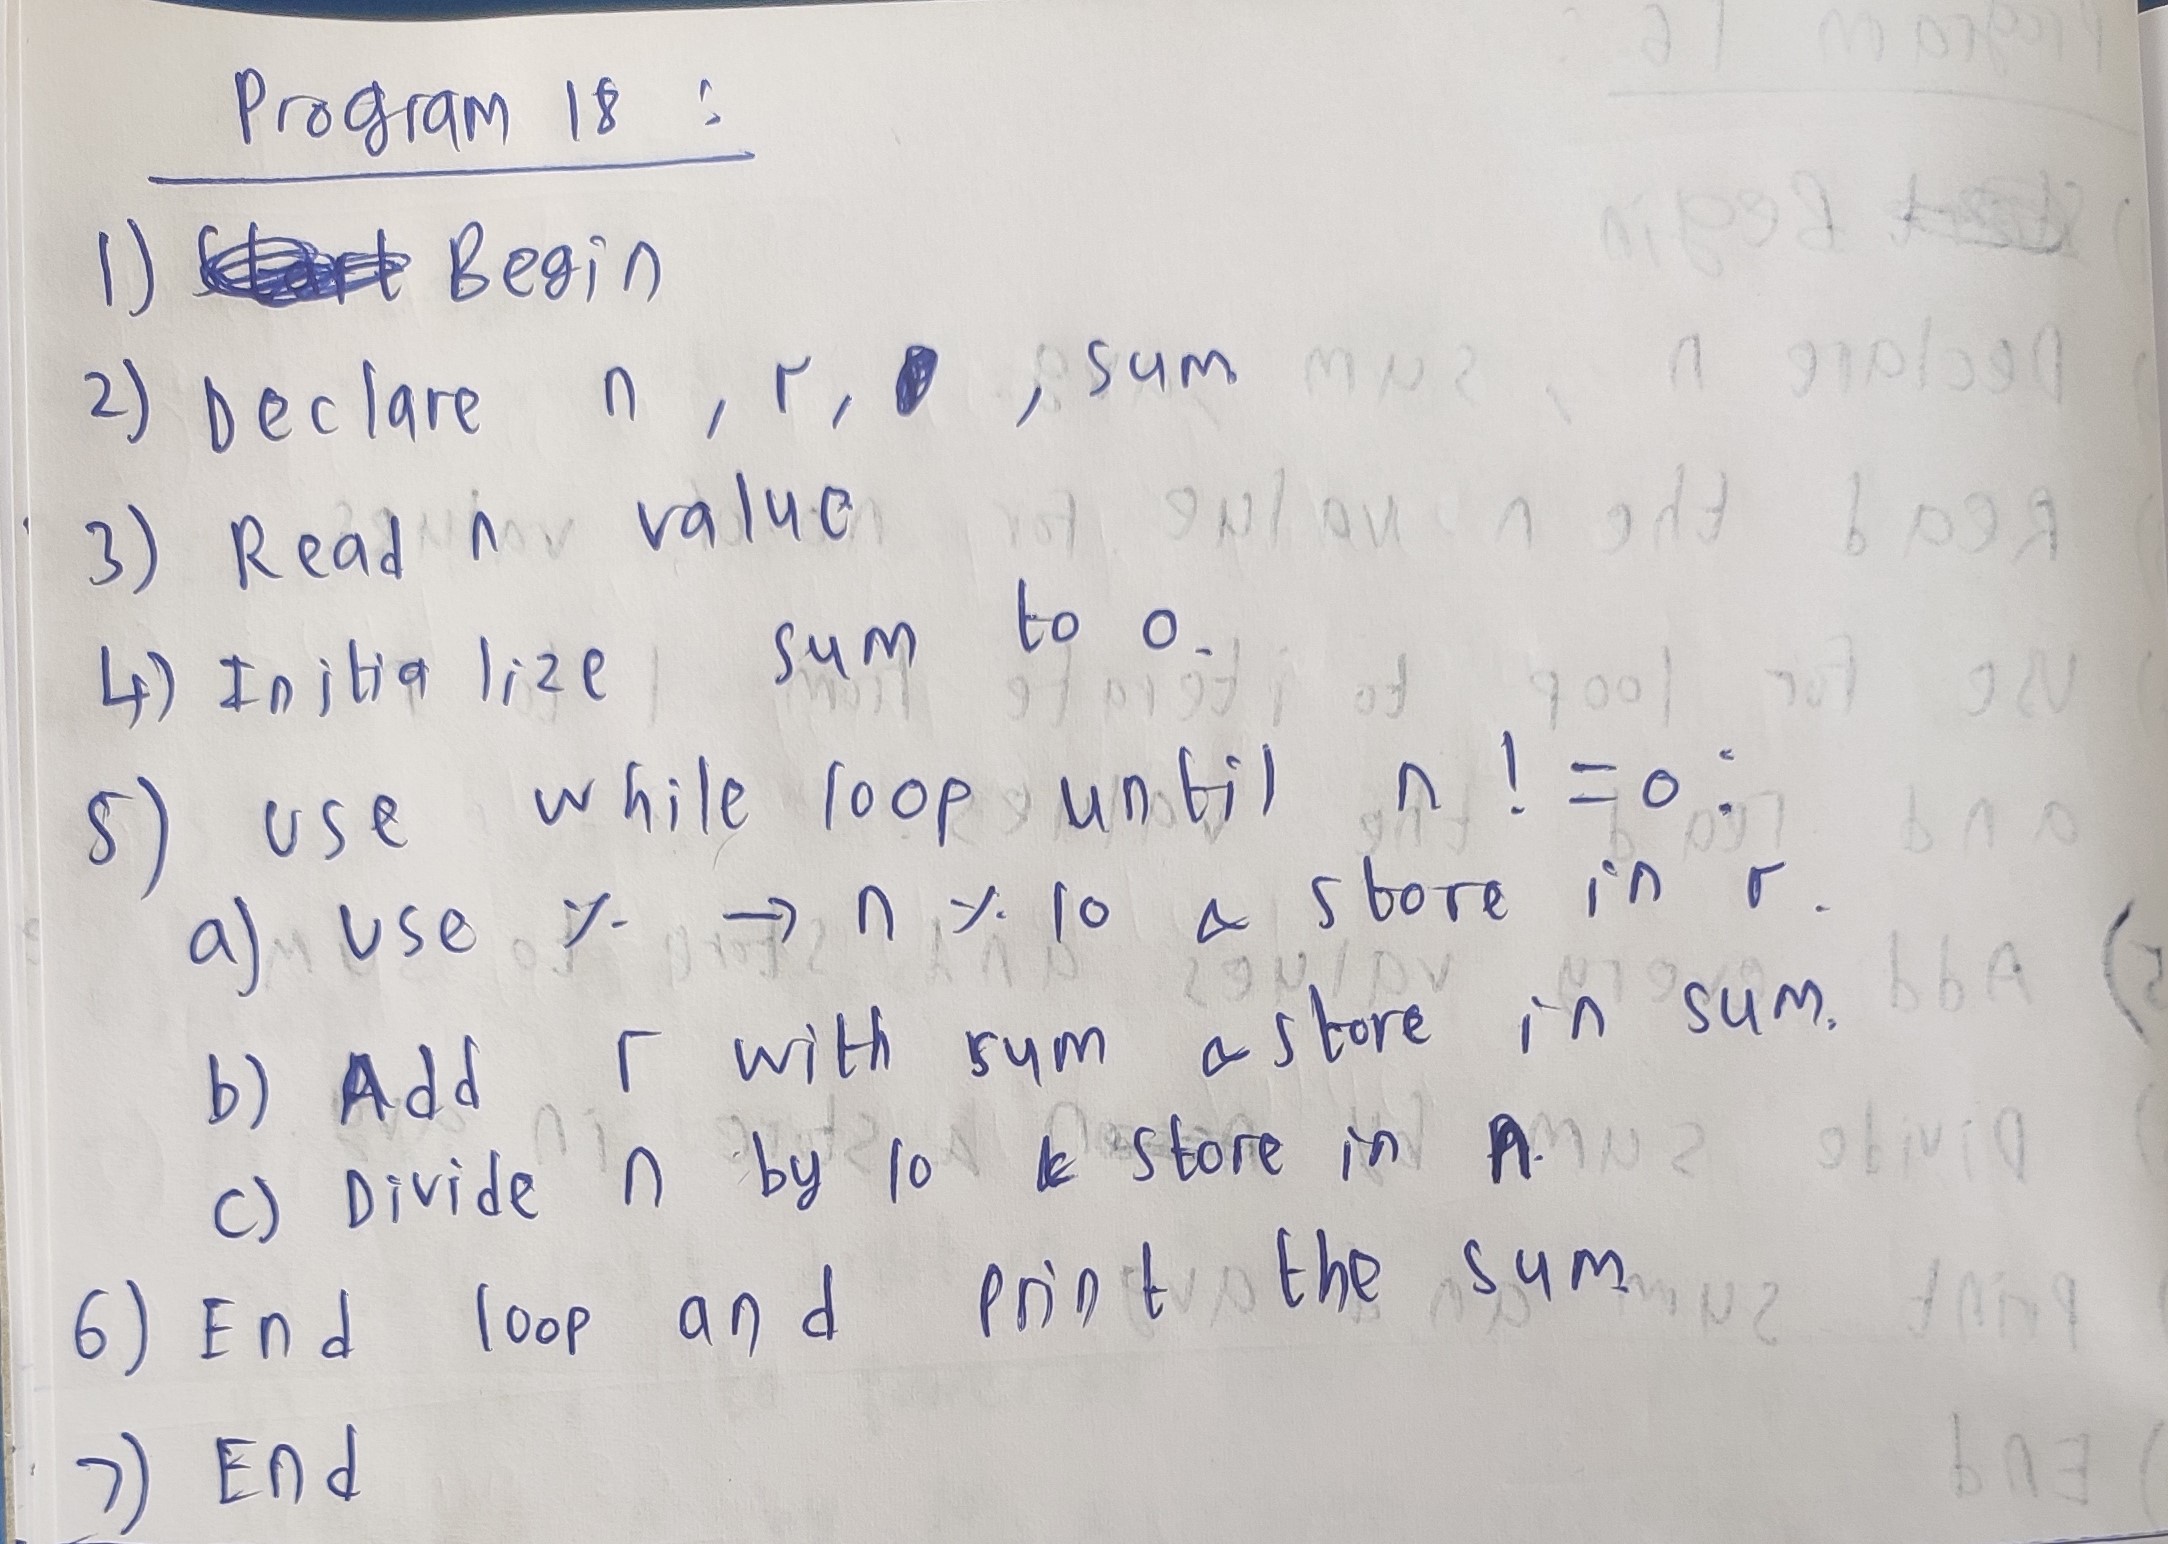 Program 18 :
1) Begin
2) Declare n , r, , sum
3) Read n value
4) Initialize sum to 0.
5) use while loop until n != 0 :
a) use % → n % 10 & store in r.
b) Add r with sum & store in sum.
c) Divide n by 10 & store in n.
6) End loop and print the sum.
7) End